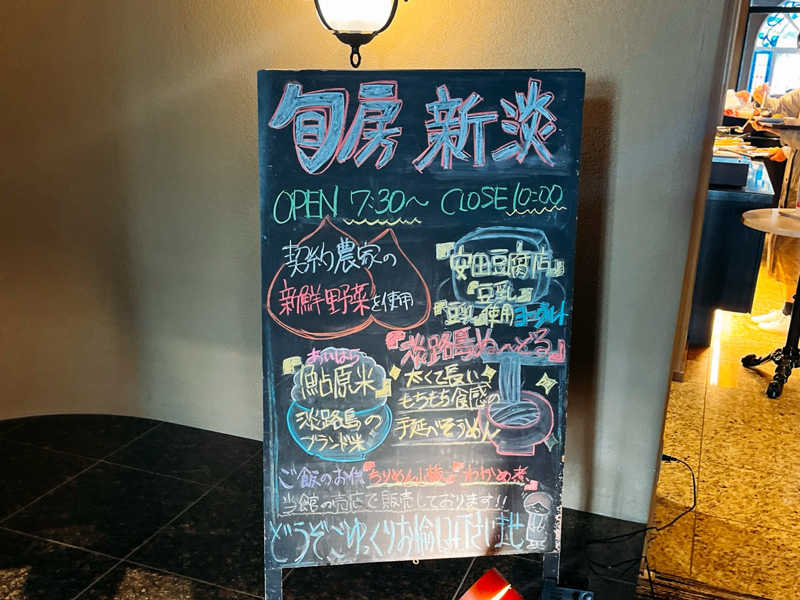 旬房 新淡
OPEN 7:30〜 CLOSE 10:00
契約農家の
新鮮野菜を使用
『安田豆腐店』
『豆乳』
『豆乳』使用ヨーグルト
『淡路島ぬーどる』
太くて長い
もちもち食感の
手延べそうめん
あいはら
『鮎原米』
淡路島の
ブランド米
ご飯のお供『ちりめん山椒』『わかめ煮』
当館の売店で販売しております!!
どうぞごゆっくりお愉しみ下さいませ